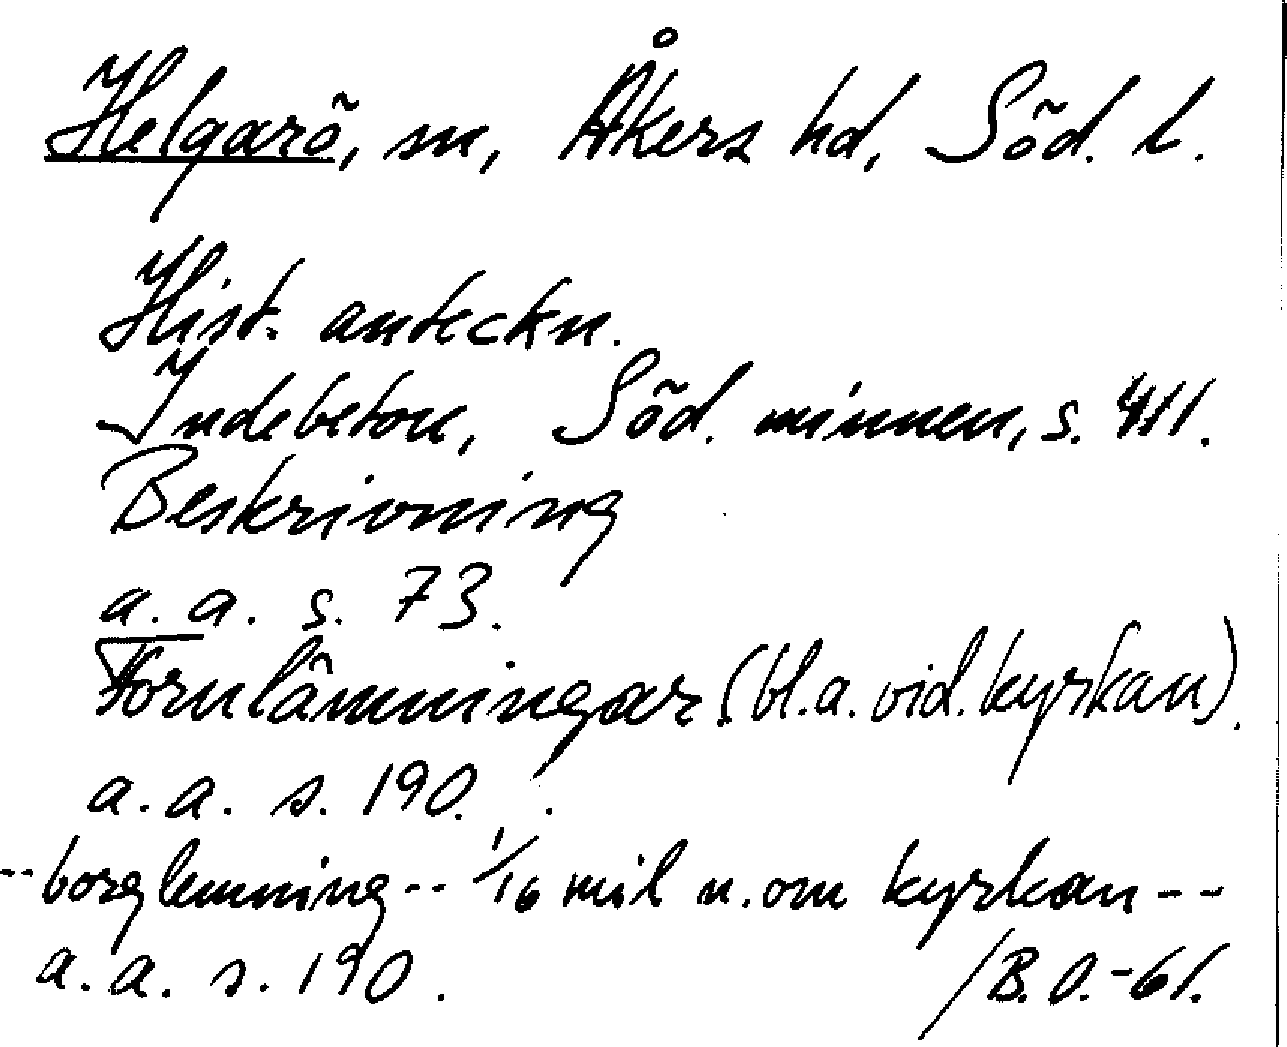 Helgarö, sn, Åkers hd, Söd. l.
Hist. anteckn.
Indebetou, Söd. minnen, s. 411.
Beskrivning
a. a. s. 73.
Fornlämningar (bl.a. vid. kyrkan).
a. a. s. 190.
--borglemning-- 1/16 mil n. om kyrkan--
a. a. s. 190. /B.O.-61.